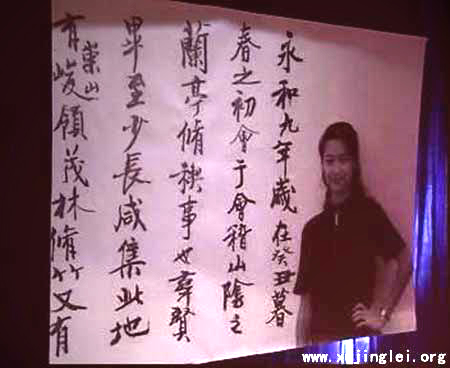 永和九年歲在癸丑暮
春之初會于會稽山陰之
蘭亭脩稧事也羣賢
畢至少長咸集此地
有崇山峻領茂林脩竹又有
www.xujinglei.org